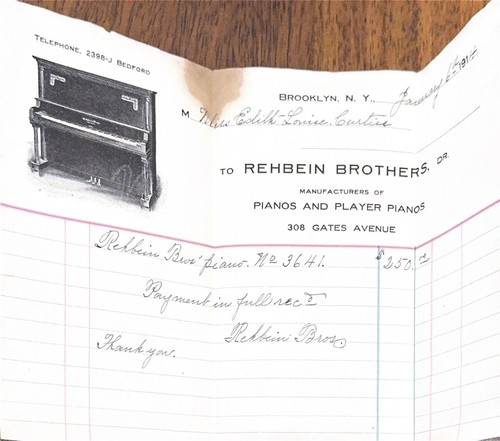 TELEPHONE, 2398-J BEDFORD
BROOKLYN, N. Y., January 6th 1914
M Miss Edith Louise Curtis
TO REHBEIN BROTHERS, DR.
MANUFACTURERS OF
PIANOS AND PLAYER PIANOS
308 GATES AVENUE
Rehbein Bros' piano. No 3641. $250.
Payment in full rec'd
Rehbein Bros.
Thank you.